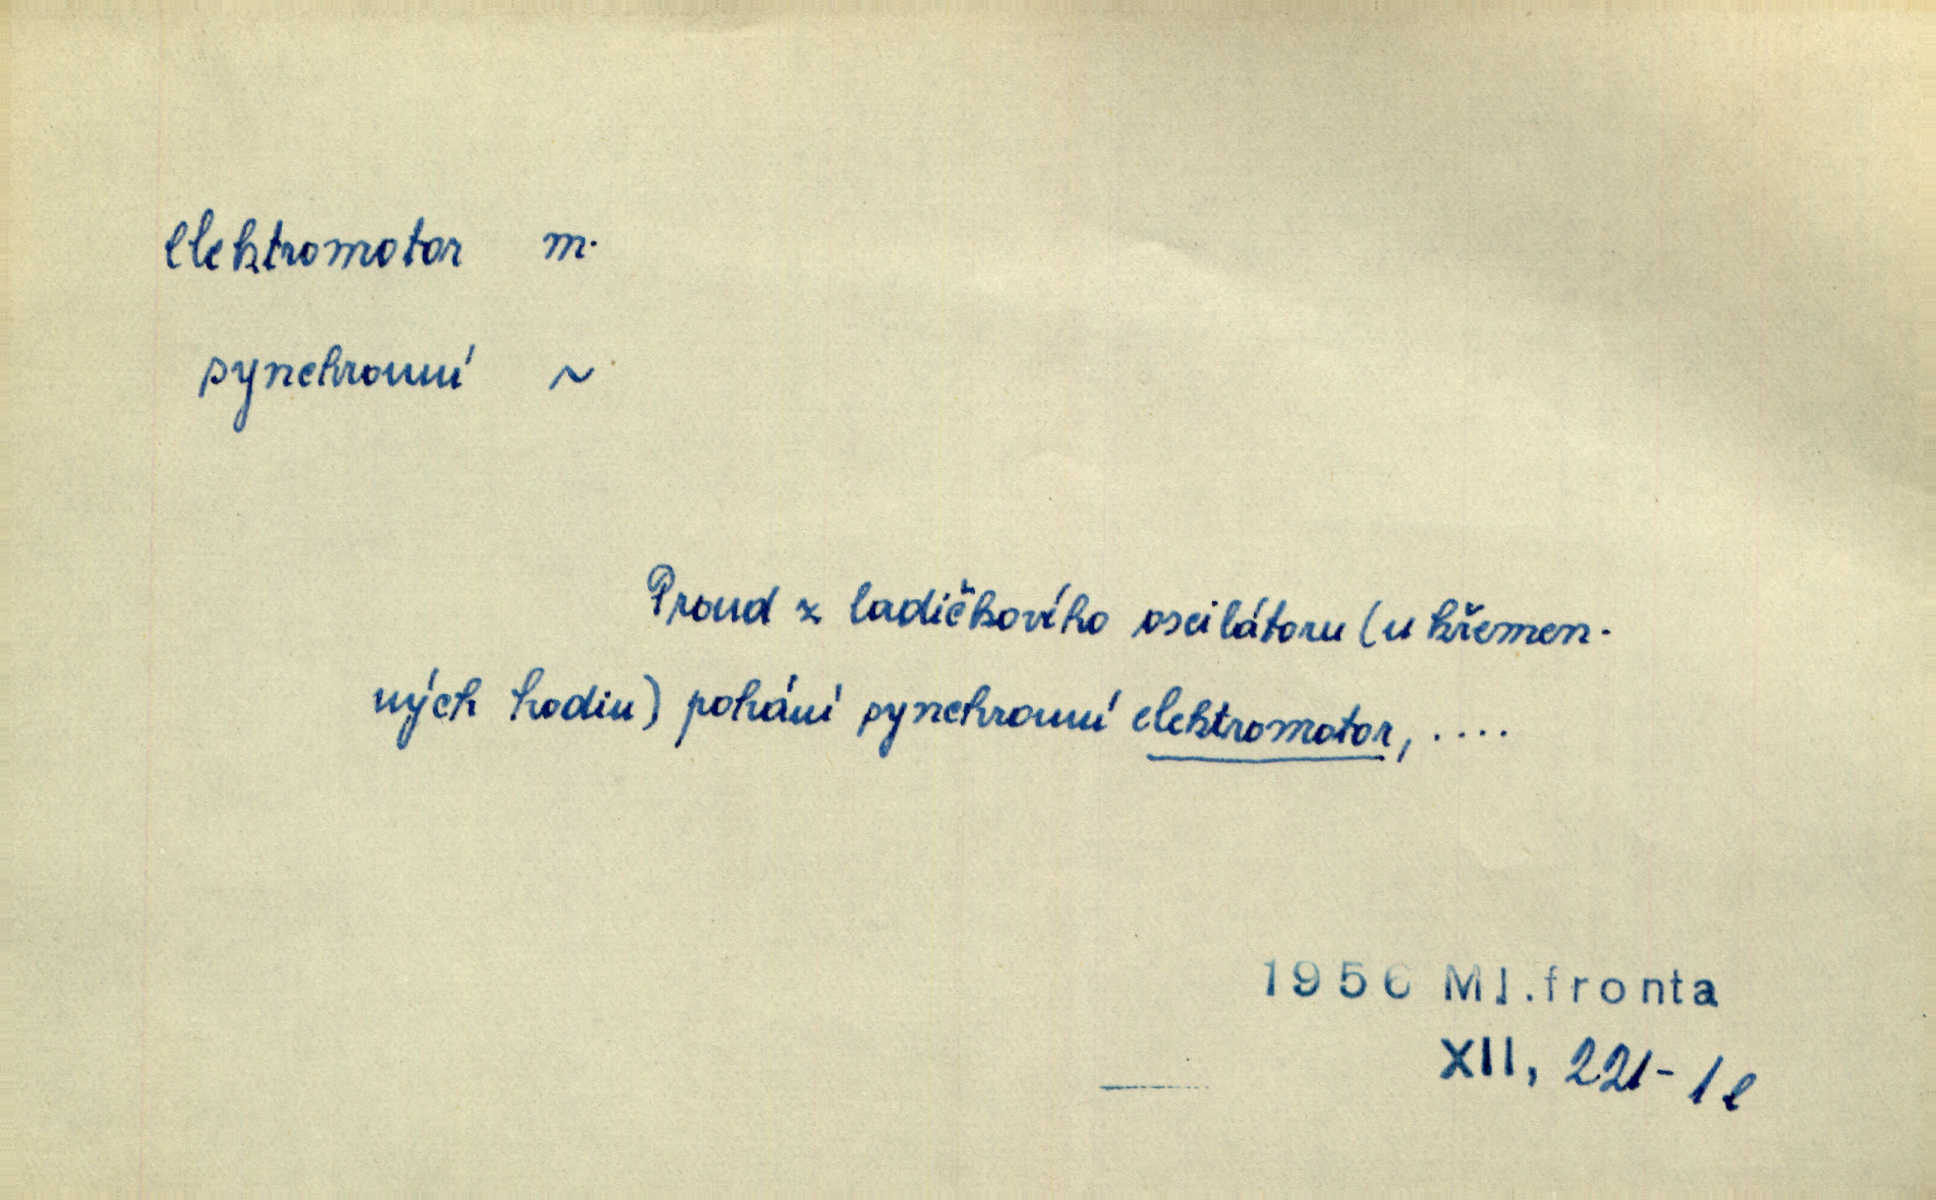 elektromotor m.
synchronní ~
Proud z ladičkového oscilátoru (u křemen-
ných hodin) pohání synchronní elektromotor, ....
1956 Ml.fronta
XII, 221-1e